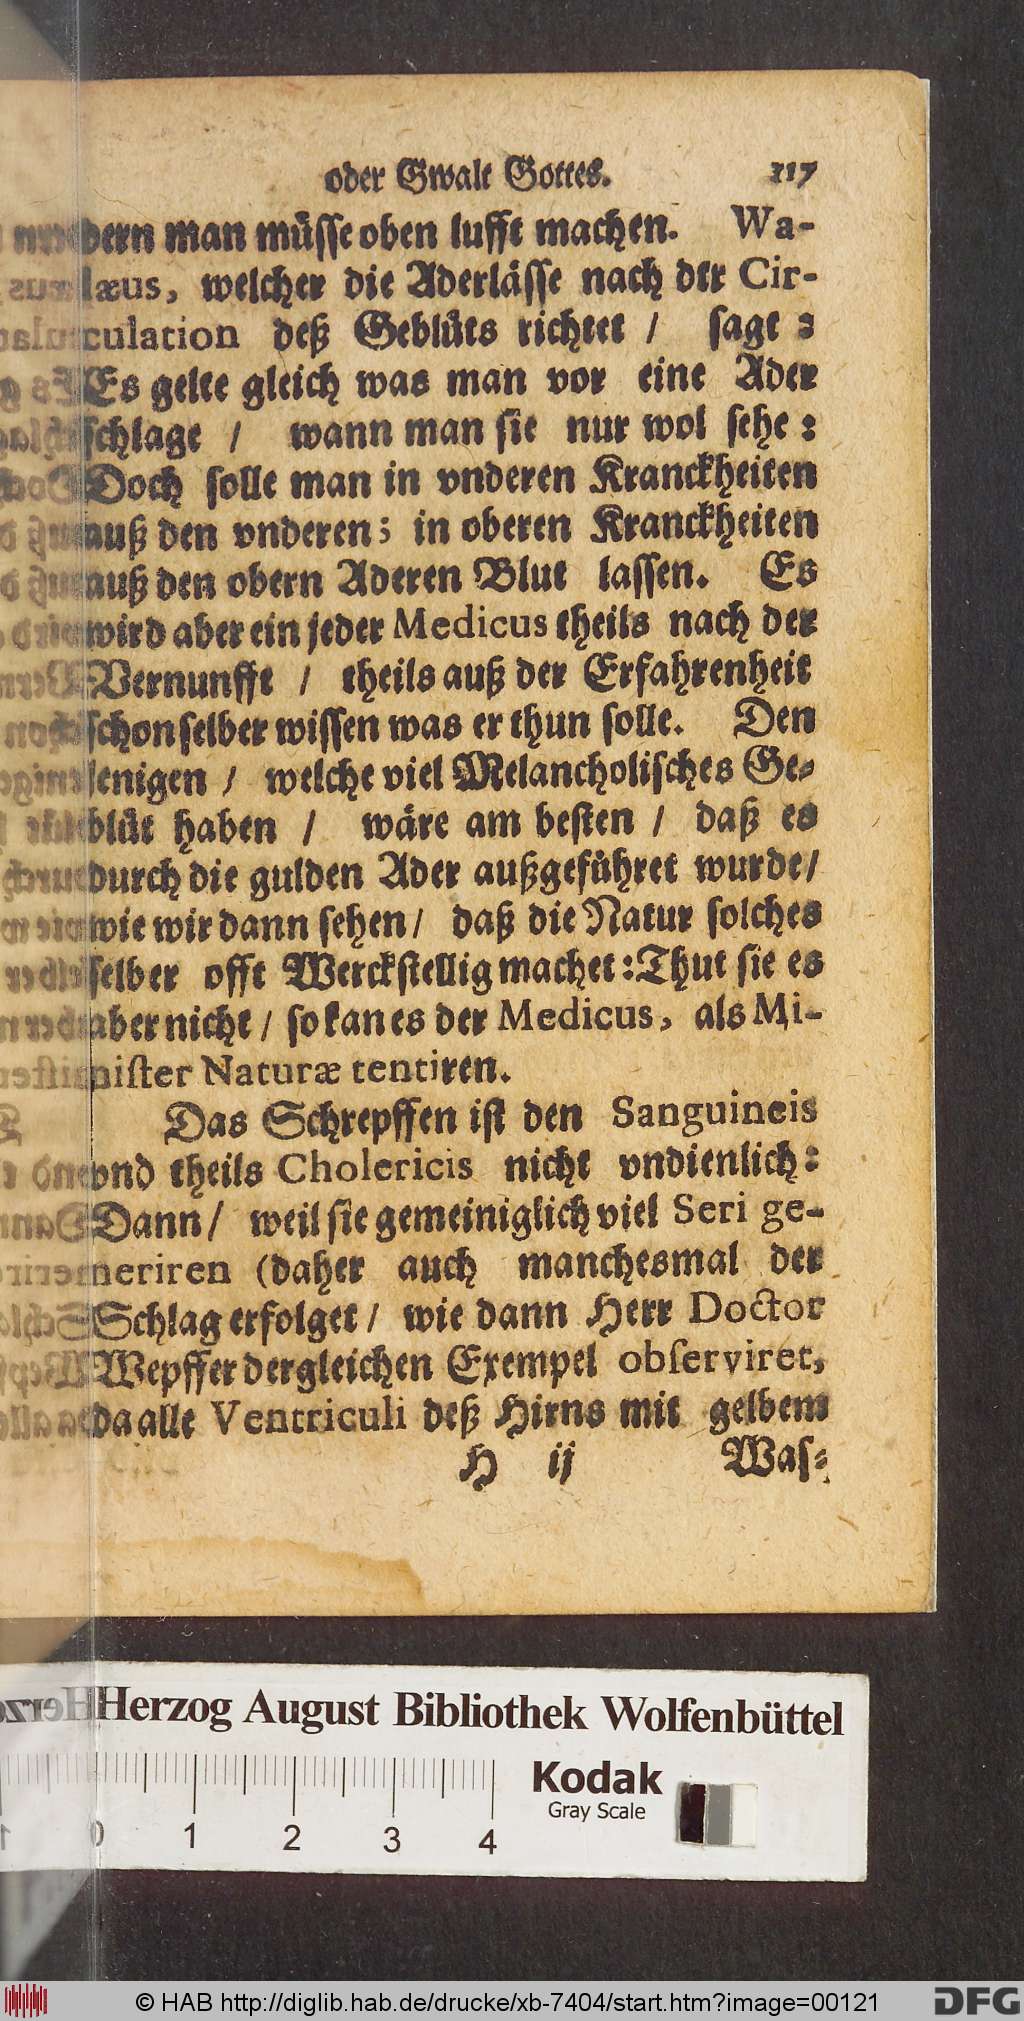 oder Gwalt Gottes. 117
dern man müsse oben lufft machen. Wa-
læus, welcher die Aderlässe nach der Cir-
culation deß Geblüts richtet / sagt :
Es gelte gleich was man vor eine Ader
schlage / wann man sie nur wol sehe :
Doch solle man in vnderen Kranckheiten
auß den vnderen; in oberen Kranckheiten
auß den obern Aderen Blut lassen. Es
wird aber ein jeder Medicus theils nach der
Vernunfft / theils auß der Erfahrenheit
schon selber wissen was er thun solle. Den
jenigen / welche viel Melancholisches Ge-
blüt haben / wäre am besten / daß es
durch die gulden Ader außgeführet wurde/
wie wir dann sehen / daß die Natur solches
selber offt Werckstellig machet: Thut sie es
aber nicht / so kan es der Medicus, als Mi-
nister Naturæ tentiren.
Das Schrepffen ist den Sanguineis
vnd theils Cholericis nicht vndienlich:
Dann / weil sie gemeiniglich viel Seri ge-
neriren (daher auch manchesmal der
Schlag erfolget / wie dann Herr Doctor
Wepffer dergleichen Exempel observiret,
da alle Ventriculi deß Hirns mit gelbem
H ij Was-
Herzog August Bibliothek Wolfenbüttel
Kodak
Gray Scale
0 1 2 3 4
© HAB http://diglib.hab.de/drucke/xb-7404/start.htm?image=00121 DFG